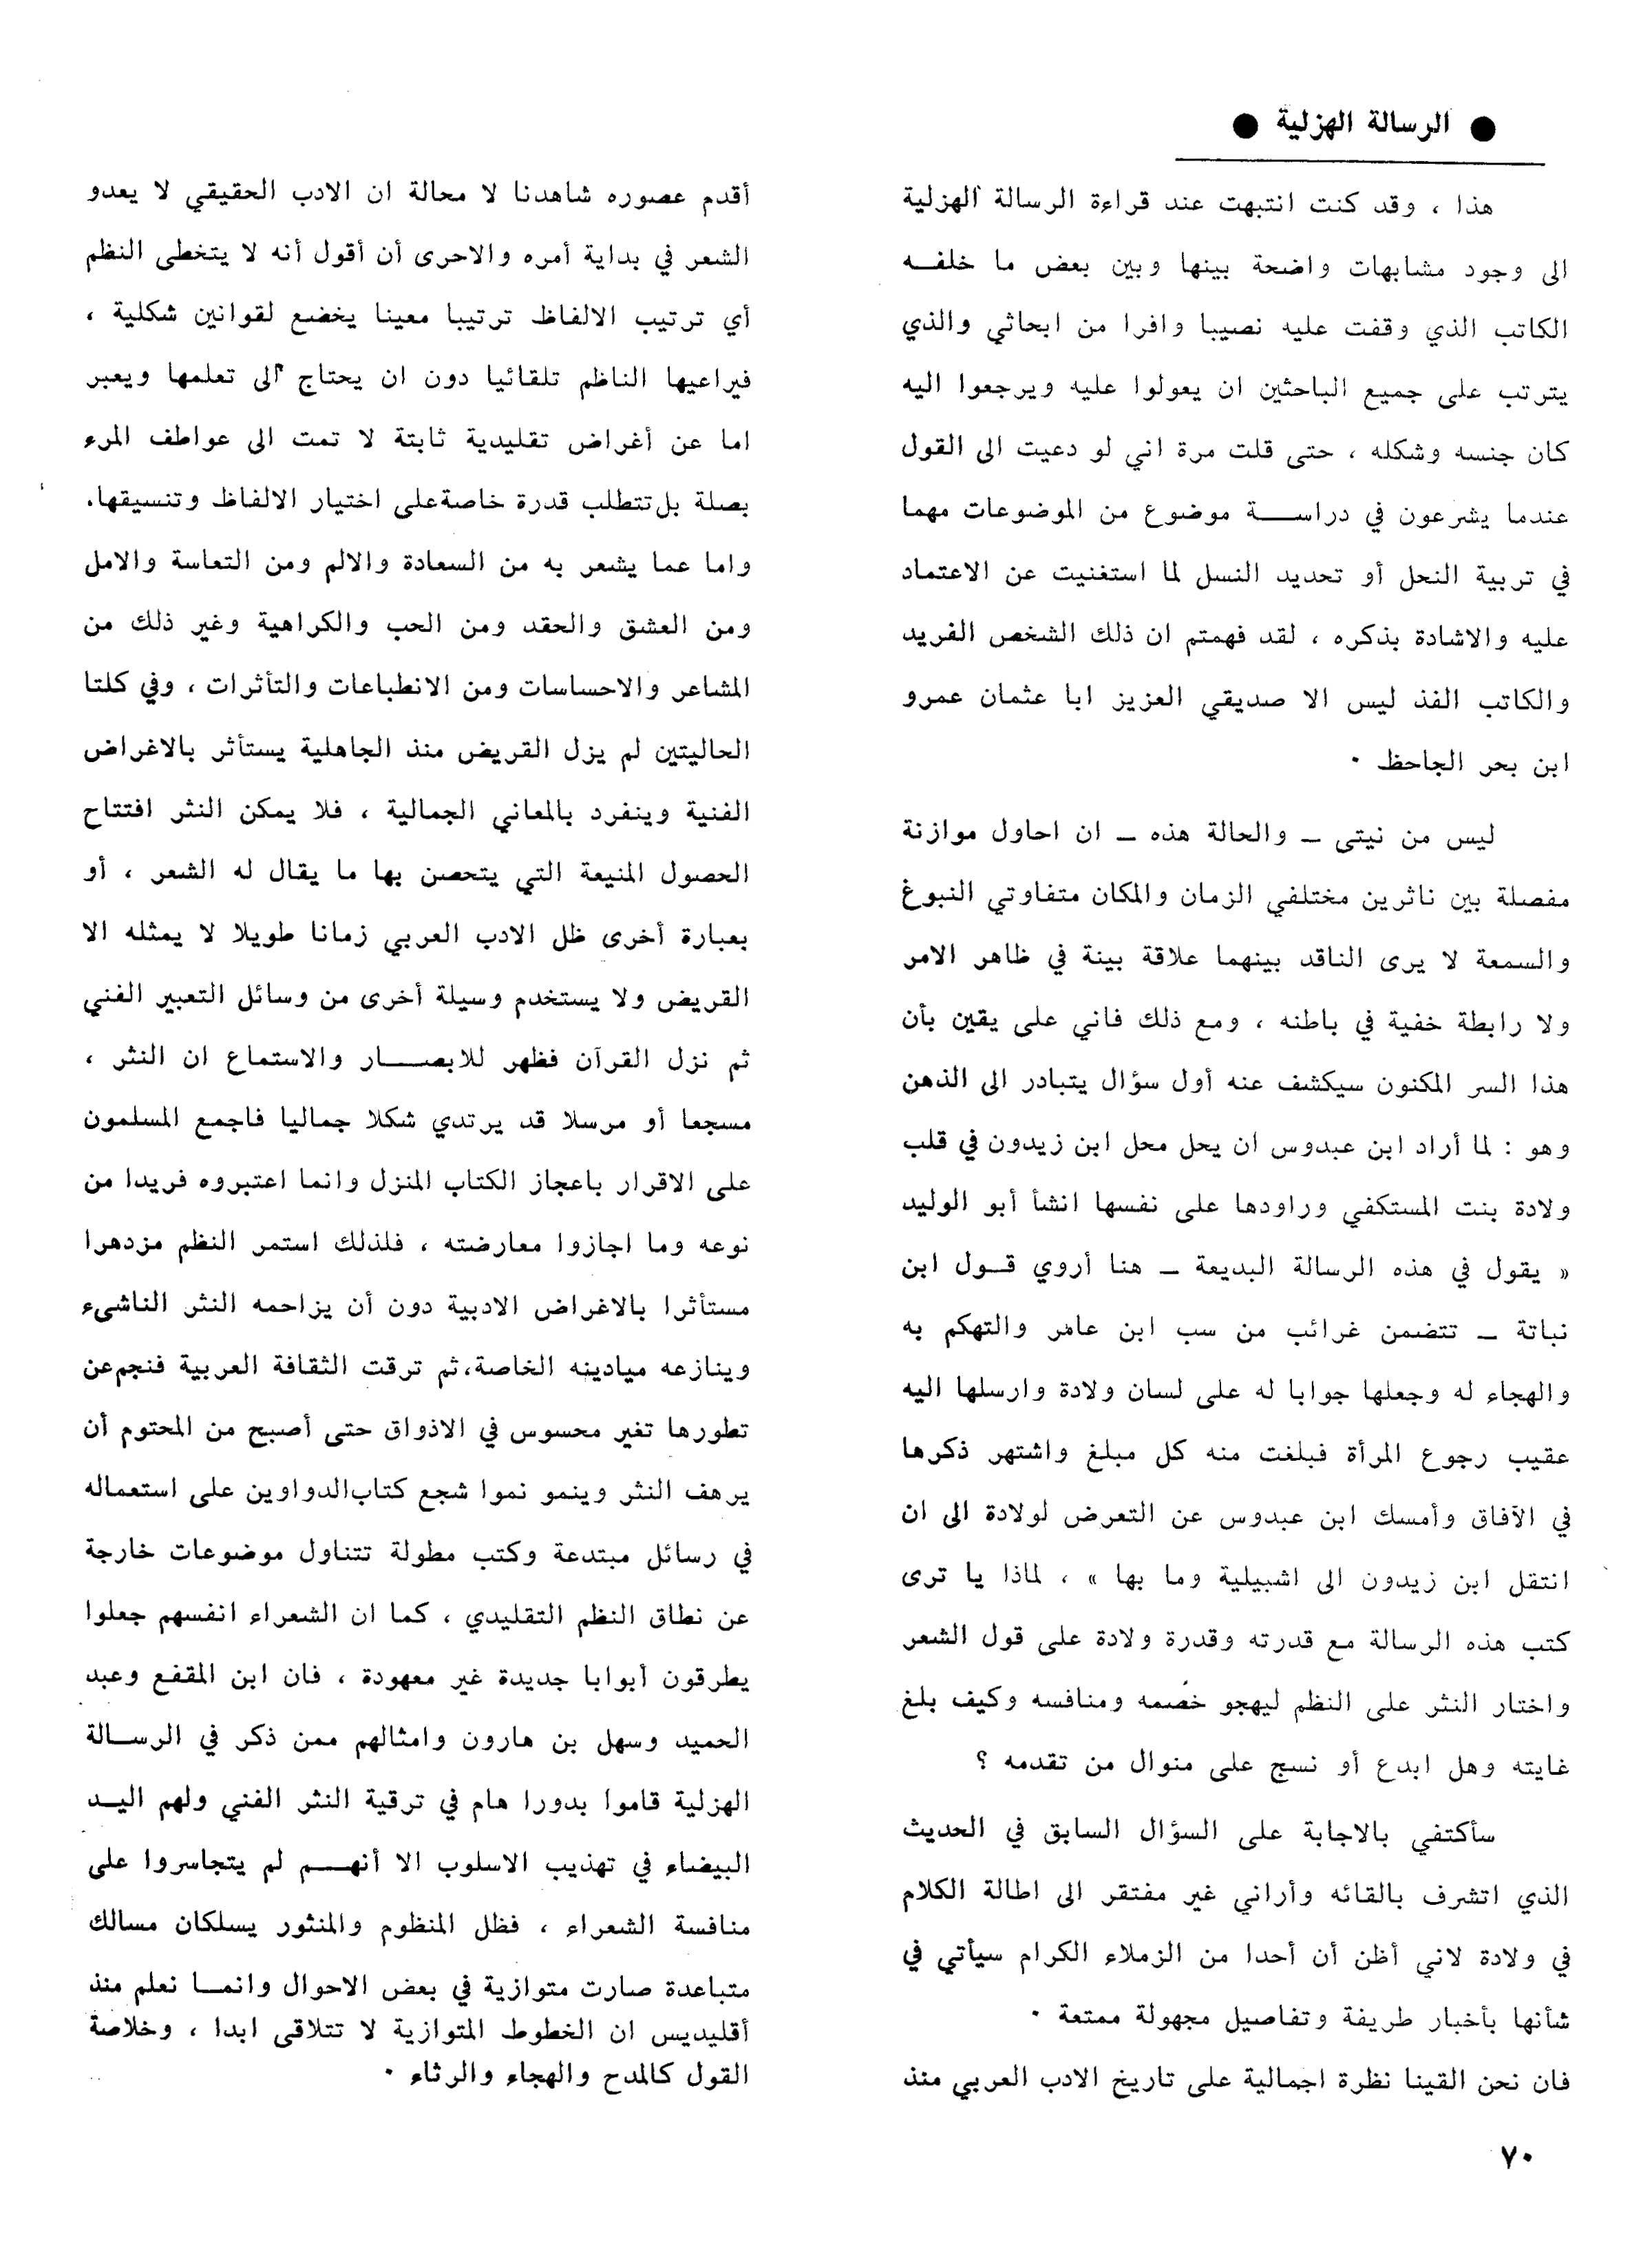 ● الرسالة الهزلية ●
هذا ، وقد كنت انتبهت عند قراءة الرسالة الهزلية
الى وجود مشابهات واضحة بينها وبين بعض ما خلفـه
الكاتب الذي وقفت عليه نصيبا وافرا من ابحاثي والذي
يترتب على جميع الباحثين ان يعولوا عليه ويرجعوا اليه
كان جنسه وشكله ، حتى قلت مرة اني لو دعيت الى القول
عندما يشرعون في دراســـة موضوع من الموضوعات مهما
في تربية النحل أو تحديد النسل لما استغنيت عن الاعتماد
عليه والاشادة بذكره ، لقد فهمتم ان ذلك الشخص الفريد
والكاتب الفذ ليس الا صديقي العزيز ابا عثمان عمرو
ابن بحر الجاحظ ·
ليس من نيتى ــ والحالة هذه ــ ان احاول موازنة
مفصلة بين ناثرين مختلفي الزمان والمكان متفاوتي النبوغ
والسمعة لا يرى الناقد بينهما علاقة بينة في ظاهر الامر
ولا رابطة خفية في باطنه ، ومع ذلك فاني على يقين بأن
هذا السر المكنون سيكشف عنه أول سؤال يتبادر الى الذهن
وهو : لما أراد ابن عبدوس ان يحل محل ابن زيدون في قلب
ولادة بنت المستكفي وراودها على نفسها انشأ أبو الوليد
« يقول في هذه الرسالة البديعة ــ هنا أروي قـول ابن
نباتة ــ تتضمن غرائب من سب ابن عامر والتهكم به
والهجاء له وجعلها جوابا له على لسان ولادة وارسلها اليه
عقيب رجوع المرأة فبلغت منه كل مبلغ واشتهر ذكرها
في الآفاق وأمسك ابن عبدوس عن التعرض لولادة الى ان
انتقل ابن زيدون الى اشبيلية وما بها » ، لماذا يا ترى
كتب هذه الرسالة مع قدرته وقدرة ولادة على قول الشعر
واختار النثر على النظم ليهجو خصمه ومنافسه وكيف بلغ
غايته وهل ابدع أو نسج على منوال من تقدمه ؟
سأكتفي بالاجابة على السؤال السابق في الحديث
الذي اتشرف بالقائه وأراني غير مفتقر الى اطالة الكلام
في ولادة لاني أظن أن أحدا من الزملاء الكرام سيأتي في
شأنها بأخبار طريفة وتفاصيل مجهولة ممتعة ·
فان نحن القينا نظرة اجمالية على تاريخ الادب العربي منذ
أقدم عصوره شاهدنا لا محالة ان الادب الحقيقي لا يعدو
الشعر في بداية أمره والاحرى أن أقول أنه لا يتخطى النظم
أي ترتيب الالفاظ ترتيبا معينا يخضع لقوانين شكلية ،
فيراعيها الناظم تلقائيا دون ان يحتاج الى تعلمها ويعبر
اما عن أغراض تقليدية ثابتة لا تمت الى عواطف المرء
بصلة بل تتطلب قدرة خاصة على اختيار الالفاظ وتنسيقها.
واما عما يشعر به من السعادة والالم ومن التعاسة والامل
ومن العشق والحقد ومن الحب والكراهية وغير ذلك من
المشاعر والاحساسات ومن الانطباعات والتأثرات ، وفي كلتا
الحاليتين لم يزل القريض منذ الجاهلية يستأثر بالاغراض
الفنية وينفرد بالمعاني الجمالية ، فلا يمكن النثر افتتاح
الحصول المنيعة التي يتحصن بها ما يقال له الشعر ، أو
بعبارة أخرى ظل الادب العربي زمانا طويلا لا يمثله الا
القريض ولا يستخدم وسيلة أخرى من وسائل التعبير الفني
ثم نزل القرآن فظهر للابصـــار والاستماع ان النثر ،
مسجعا أو مرسلا قد يرتدي شكلا جماليا فاجمع المسلمون
على الاقرار باعجاز الكتاب المنزل وانما اعتبروه فريدا من
نوعه وما اجازوا معارضته ، فلذلك استمر النظم مزدهرا
مستأثرا بالاغراض الادبية دون أن يزاحمه النثر الناشىء
وينازعه ميادينه الخاصة، ثم ترقت الثقافة العربية فنجم عن
تطورها تغير محسوس في الاذواق حتى أصبح من المحتوم أن
يرهف النثر وينمو نموا شجع كتاب الدواوين على استعماله
في رسائل مبتدعة وكتب مطولة تتناول موضوعات خارجة
عن نطاق النظم التقليدي ، كما ان الشعراء انفسهم جعلوا
يطرقون أبوابا جديدة غير معهودة ، فان ابن المقفع وعبد
الحميد وسهل بن هارون وامثالهم ممن ذكر في الرسـالة
الهزلية قاموا بدورا هام في ترقية النثر الفني ولهم اليـد
البيضاء في تهذيب الاسلوب الا أنهـــم لم يتجاسروا على
منافسة الشعراء ، فظل المنظوم والمنثور يسلكان مسالك
متباعدة صارت متوازية في بعض الاحوال وانمـا نعلم منذ
أقليديس ان الخطوط المتوازية لا تتلاقى ابدا ، وخلاصة
القول كالمدح والهجاء والرثاء ·
٧٠